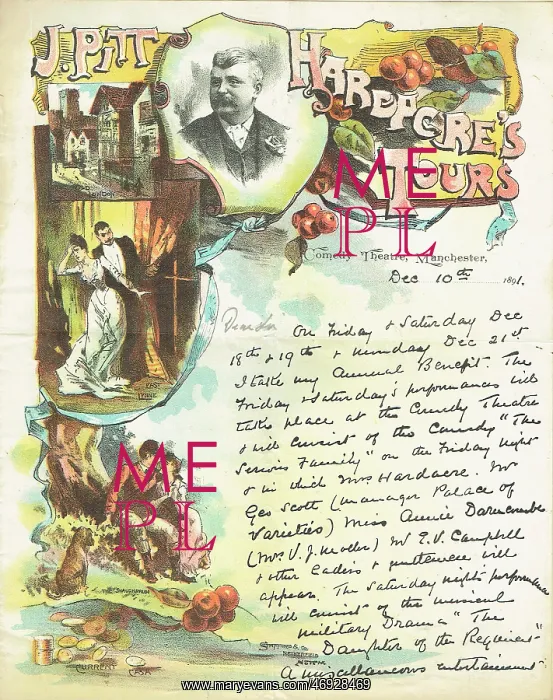 J. PITT
HARDACRE'S
TOURS
LONDON
ME
PL
Comedy Theatre, Manchester,
Dec 10th 1891.
On Friday & Saturday Dec
18th & 19th & Monday Dec 21st
I take my Annual Benefit. The
Friday & Saturday's performances will
take place at the Comedy Theatre
& will consist of the Comedy "The
Serious Family" on the Friday night
& in which Mrs Hardacre. Mr
Geo Scott (manager Palace of
Varieties) Miss Annie
(Mrs V. J. ) Mr E. V. Campbell
& other Ladies & gentlemen will
appear. The Saturday night's performance
will consist of the musical
military Drama "The
Daughter of the Regiment"
A miscellaneous entertainment
EAST
LYNNE
ME
PL
CURRENT
CASH
STAFFORD & CO
NETHERFIELD
www.maryevans.com/46928469